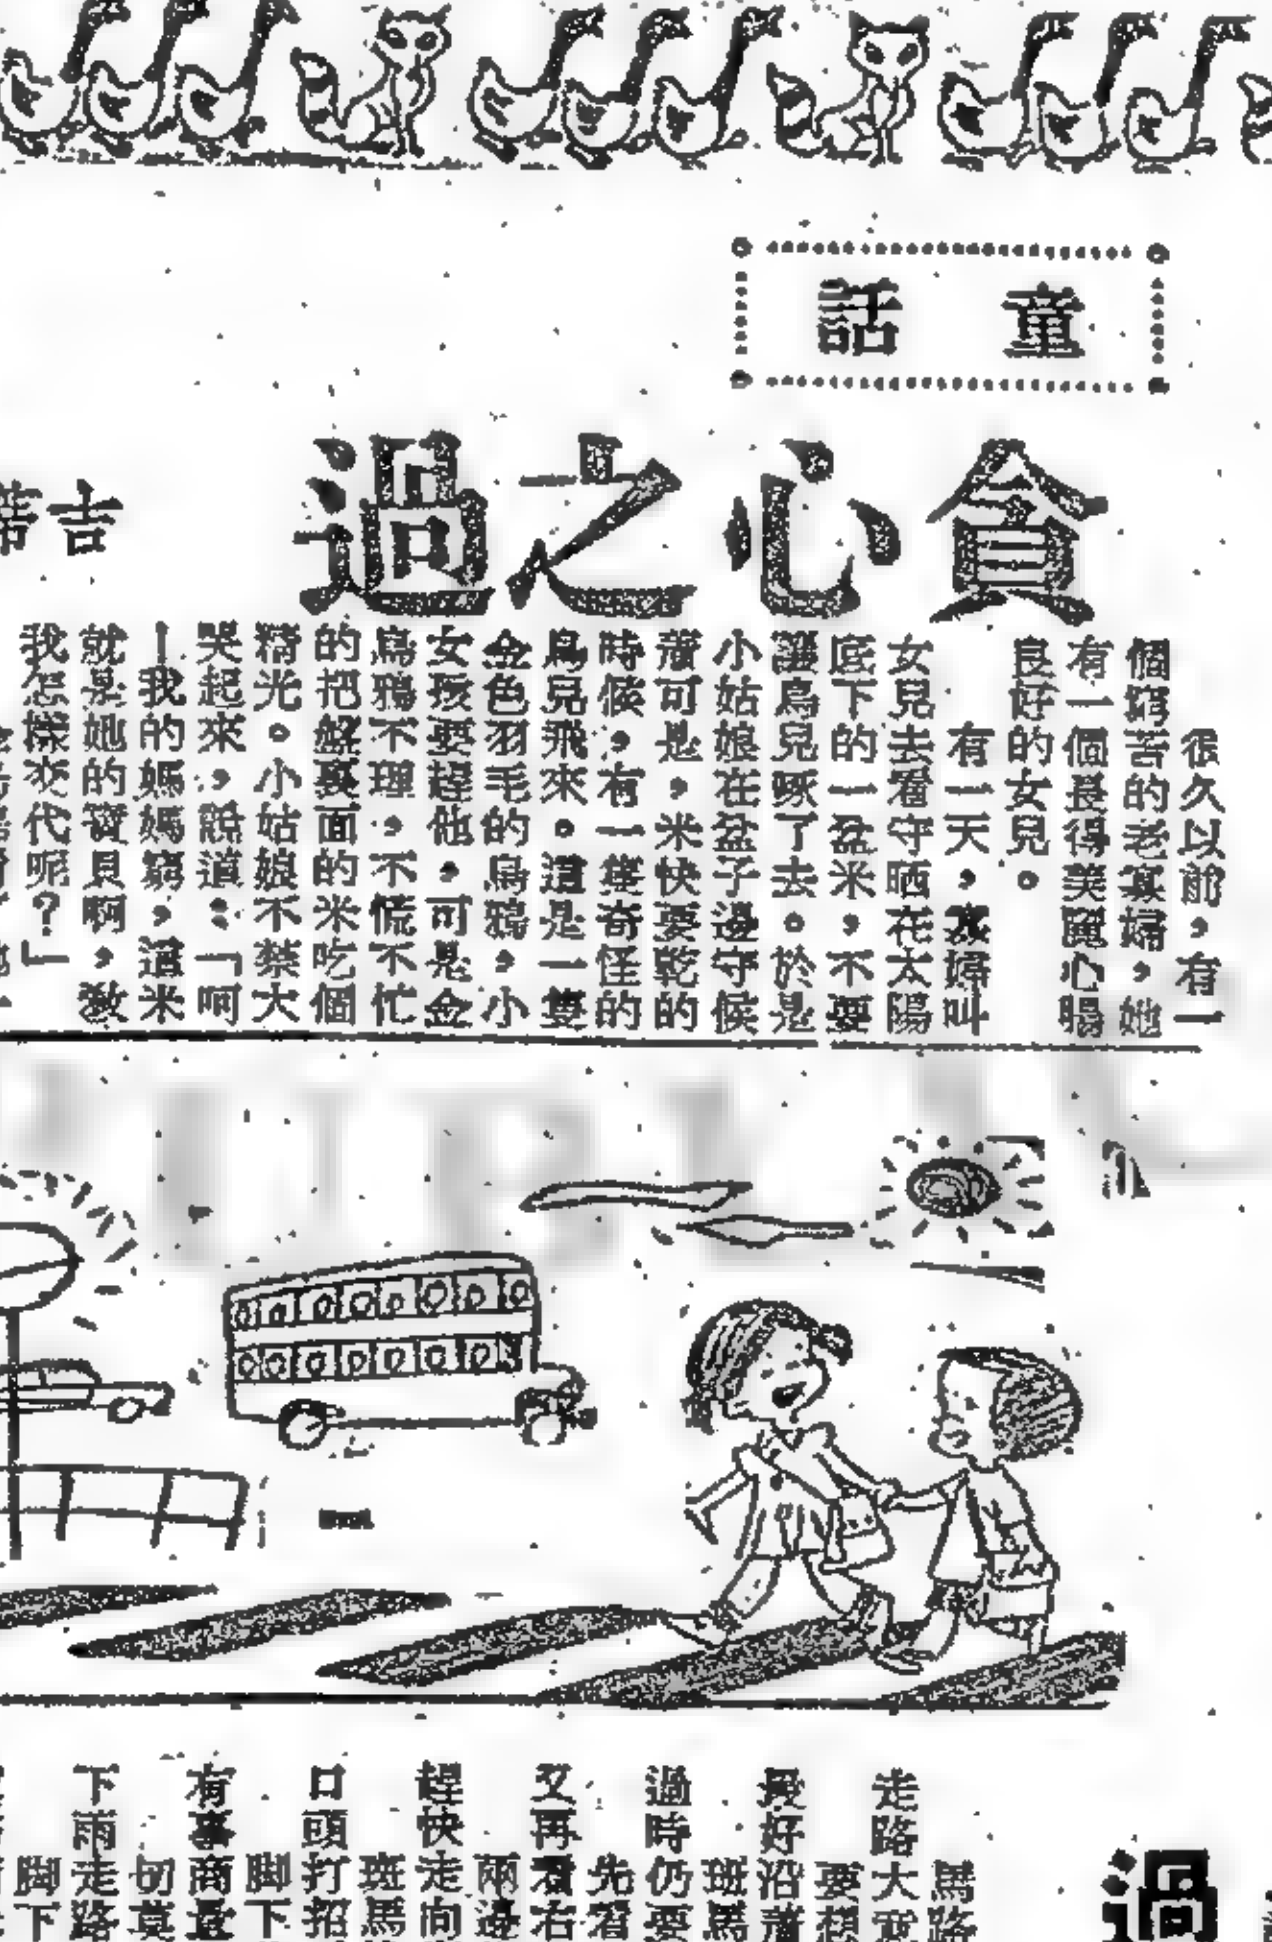 童話
貪心之過
吉
很久以前，有一
個窮苦的老寡婦，她
有一個長得美麗心腸
良好的女兒。
有一天，寡婦叫
女兒去看守晒在太陽
底下的一盆米，不要
讓鳥兒啄了去。於是
小姑娘在盆子邊守候
着可是，米快要乾的
時候，有一隻奇怪的
鳥兒飛來。這是一隻
金色羽毛的烏鴉，小
女孩要趕他，可是金
烏鴉不理，不慌不忙
的把盤裏面的米吃個
精光。小姑娘不禁大
哭起來，說道：「呵
—我的媽媽窮，這米
就是她的寶貝啊，敎
我怎樣交代呢？」
過
馬路
走路大
要想
沿着
班馬
過時仍要
先看
又再看右
兩邊
趕快走向
斑馬
口頭打招
脚下
有事商量
切莫
下雨走路
脚下